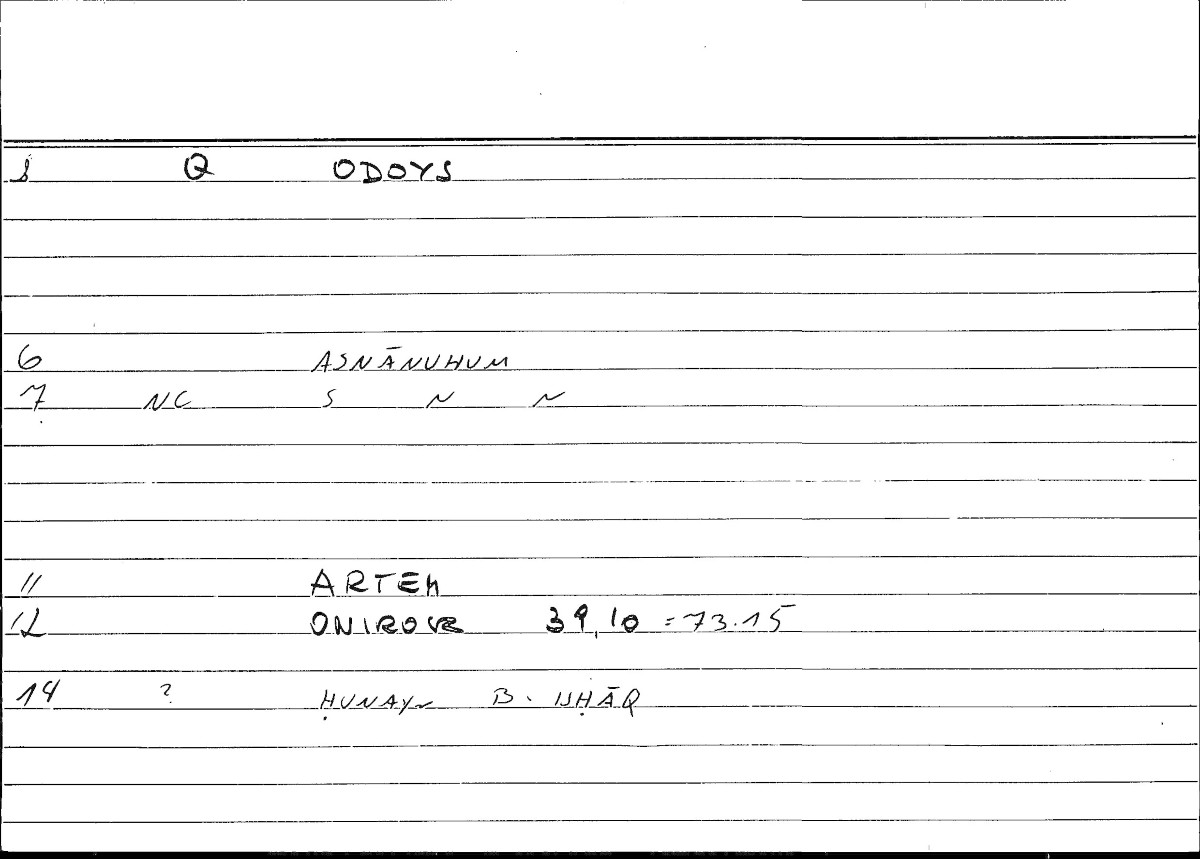 1 Q ODOYS
6 ASNĀNUHUM
7 NC S N N
11 ARTEM
12 ONIROCR 39,10 = 73.15
14 ? ḤUNAYN B. ISḤĀQ